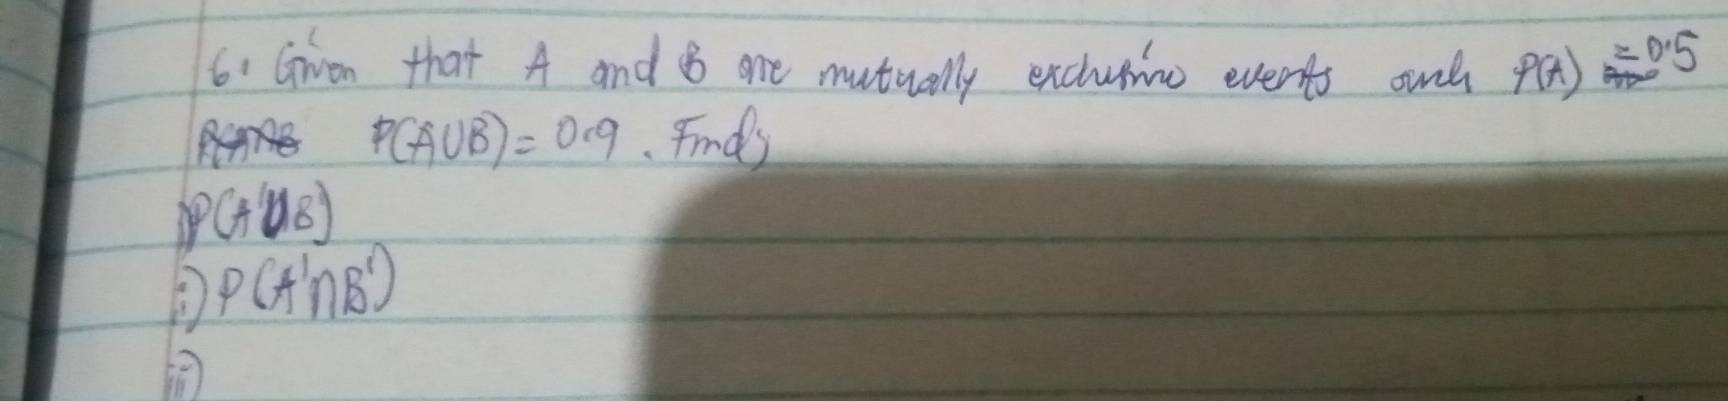 6. Given that A and B are mutually exclusive events such P(A) = 0.5
P(A∪B) = 0.9. Find;
i) P(A'∪B)
ii) P(A'∩B')
iii)